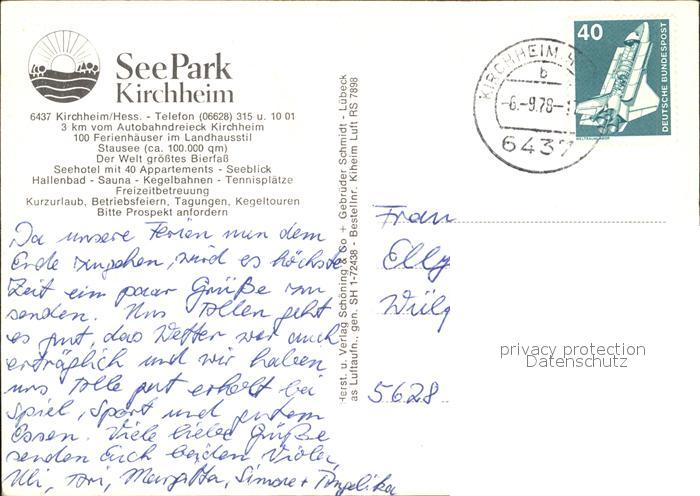 SeePark
Kirchheim
6437 Kirchheim/Hess. - Telefon (06628) 315 u. 10 01
3 km vom Autobahndreieck Kirchheim
100 Ferienhäuser im Landhausstil
Stausee (ca. 100.000 qm)
Der Welt größtes Bierfaß
Seehotel mit 40 Appartements - Seeblick
Hallenbad - Sauna - Kegelbahnen - Tennisplätze
Freizeitbetreuung
Kurzurlaub, Betriebsfeiern, Tagungen, Kegeltouren
Bitte Prospekt anfordern
Da unsere Ferien nun dem
Ende zugehen, wird es höchste
Zeit ein paar Grüße zu
senden. Uns allen geht
es gut, das Wetter war auch
erträglich und wir haben
uns alle gut erholt bei
Spiel, Sport und gutem
Essen. Viele liebe Grüße
senden Euch beiden Viola,
Ulli, Margitta, Simone + Angelika
Herst. u. Verlag Schöning & Co + Gebrüder Schmidt - Lübeck
as Luftaufn., gen. SH 1-72438 - Bestellnr. Kiheim Luft RS 7898
KIRCHHEIM
b
-6.-9.78-1
6437
40
DEUTSCHE BUNDESPOST
Frau
Elly
Wülg
5628
privacy protection
Datenschutz